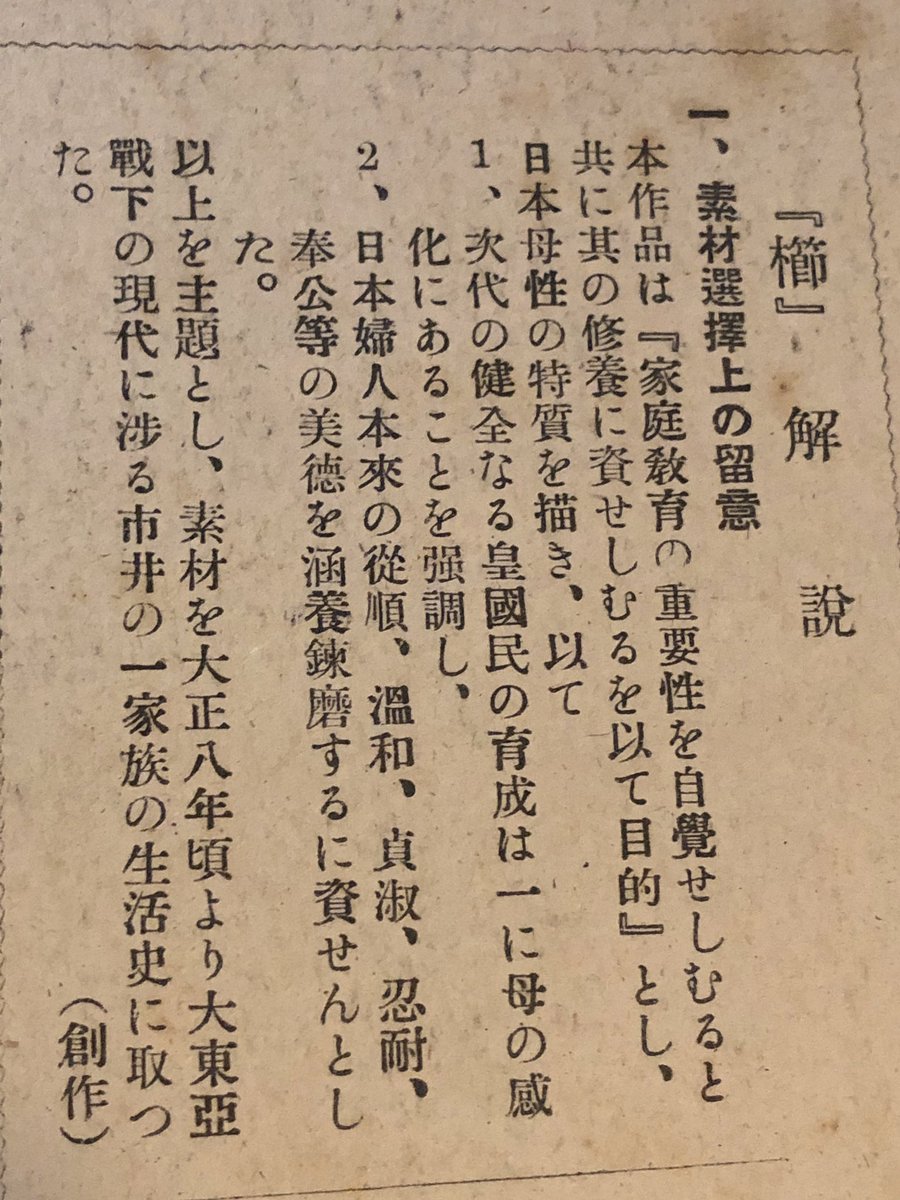 『櫛』解說
一、素材選擇上の留意
本作品は『家庭敎育の重要性を自覺せしむると
共に其の修養に資せしむるを以て目的』とし、
日本母性の特質を描き、以て
1、次代の健全なる皇國民の育成は一に母の感
化にあることを强調し、
2、日本婦人本來の從順、溫和、貞淑、忍耐、
奉公等の美德を涵養鍊磨するに資せんとし
た。
以上を主題とし、素材を大正八年頃より大東亞
戰下の現代に涉る市井の一家族の生活史に取つ
た。（創作）